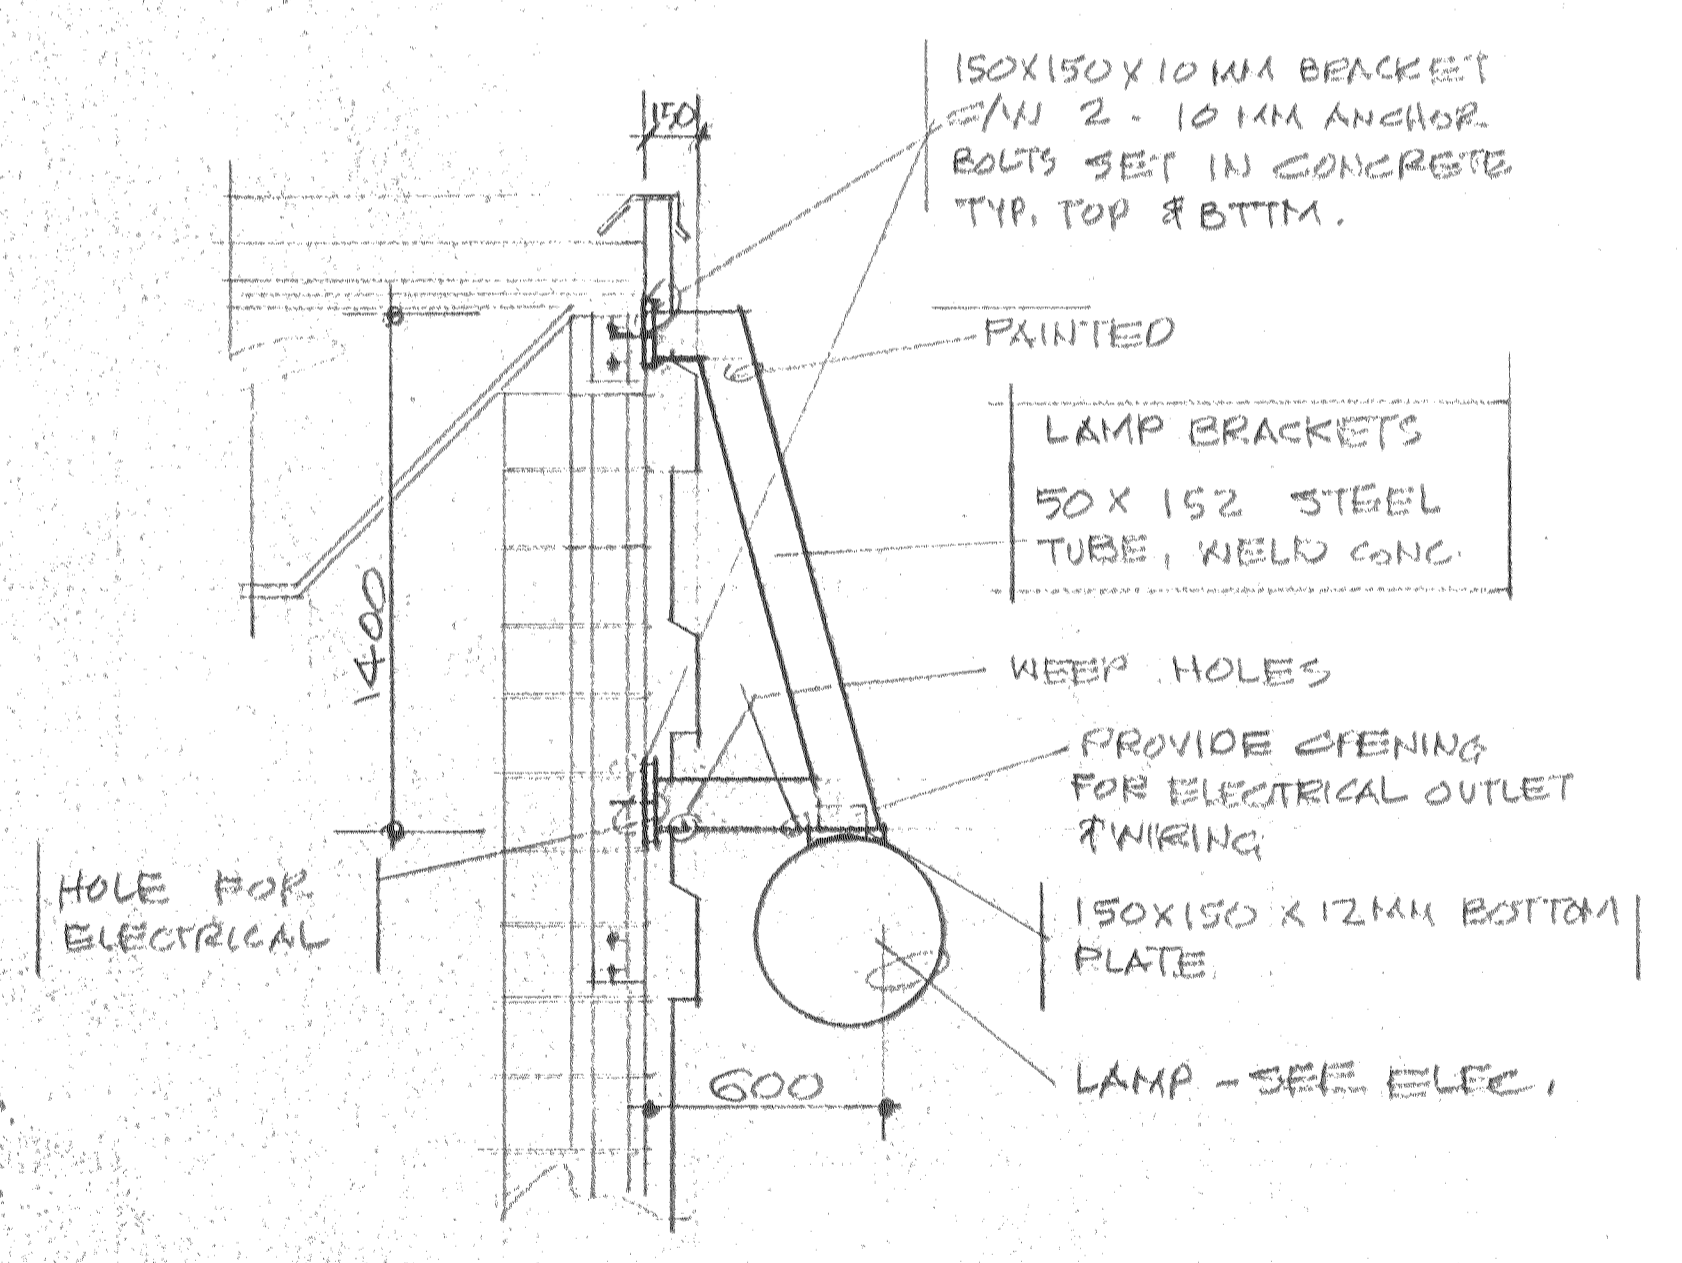 150X150X10 MM BRACKET
C/W 2 - 10 MM ANCHOR
BOLTS SET IN CONCRETE
TYP. TOP & BTTM.
150
PAINTED
LAMP BRACKETS
50 X 152 STEEL
TUBE, WELD CONC.
1400
WEEP HOLES
PROVIDE OPENING
FOR ELECTRICAL OUTLET
& WIRING
HOLE FOR
ELECTRICAL
150X150 X 12MM BOTTOM
PLATE
600
LAMP - SEE ELEC.